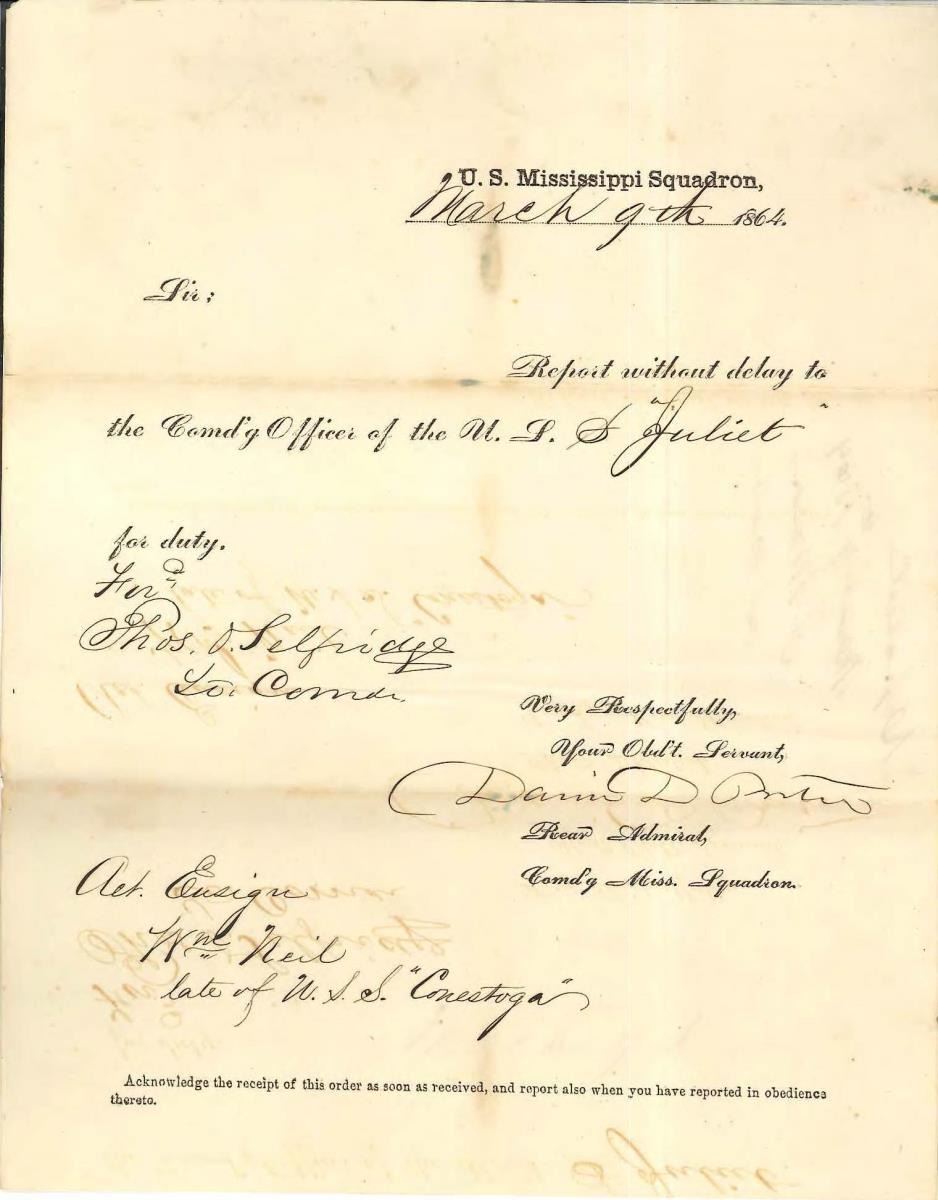 U. S. Mississippi Squadron,
March 9th 1864.
Sir;
Report without delay to
the Comd'g Officer of the U. S. S "Juliet"
for duty.
For'd
Thos. O. Selfridge
Lt. Comdr.
Very Respectfully,
Your Obd't. Servant,
David D Porter
Rear Admiral,
Comd'g Miss. Squadron.
Act. Ensign
Wm Neil
late of U. S. S. "Conestoga"
Acknowledge the receipt of this order as soon as received, and report also when you have reported in obedience
thereto.